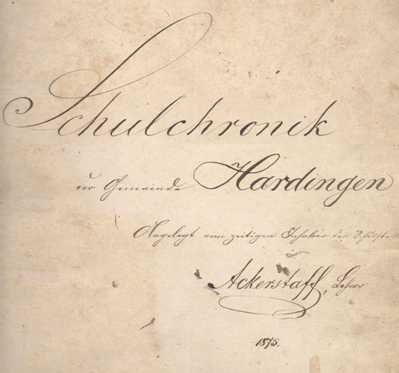 Schulchronik
der Gemeinde Hardingen
Angelegt vom zeitigen Inhaber der Schulste
Ackerstaff, Lehrer
1875.